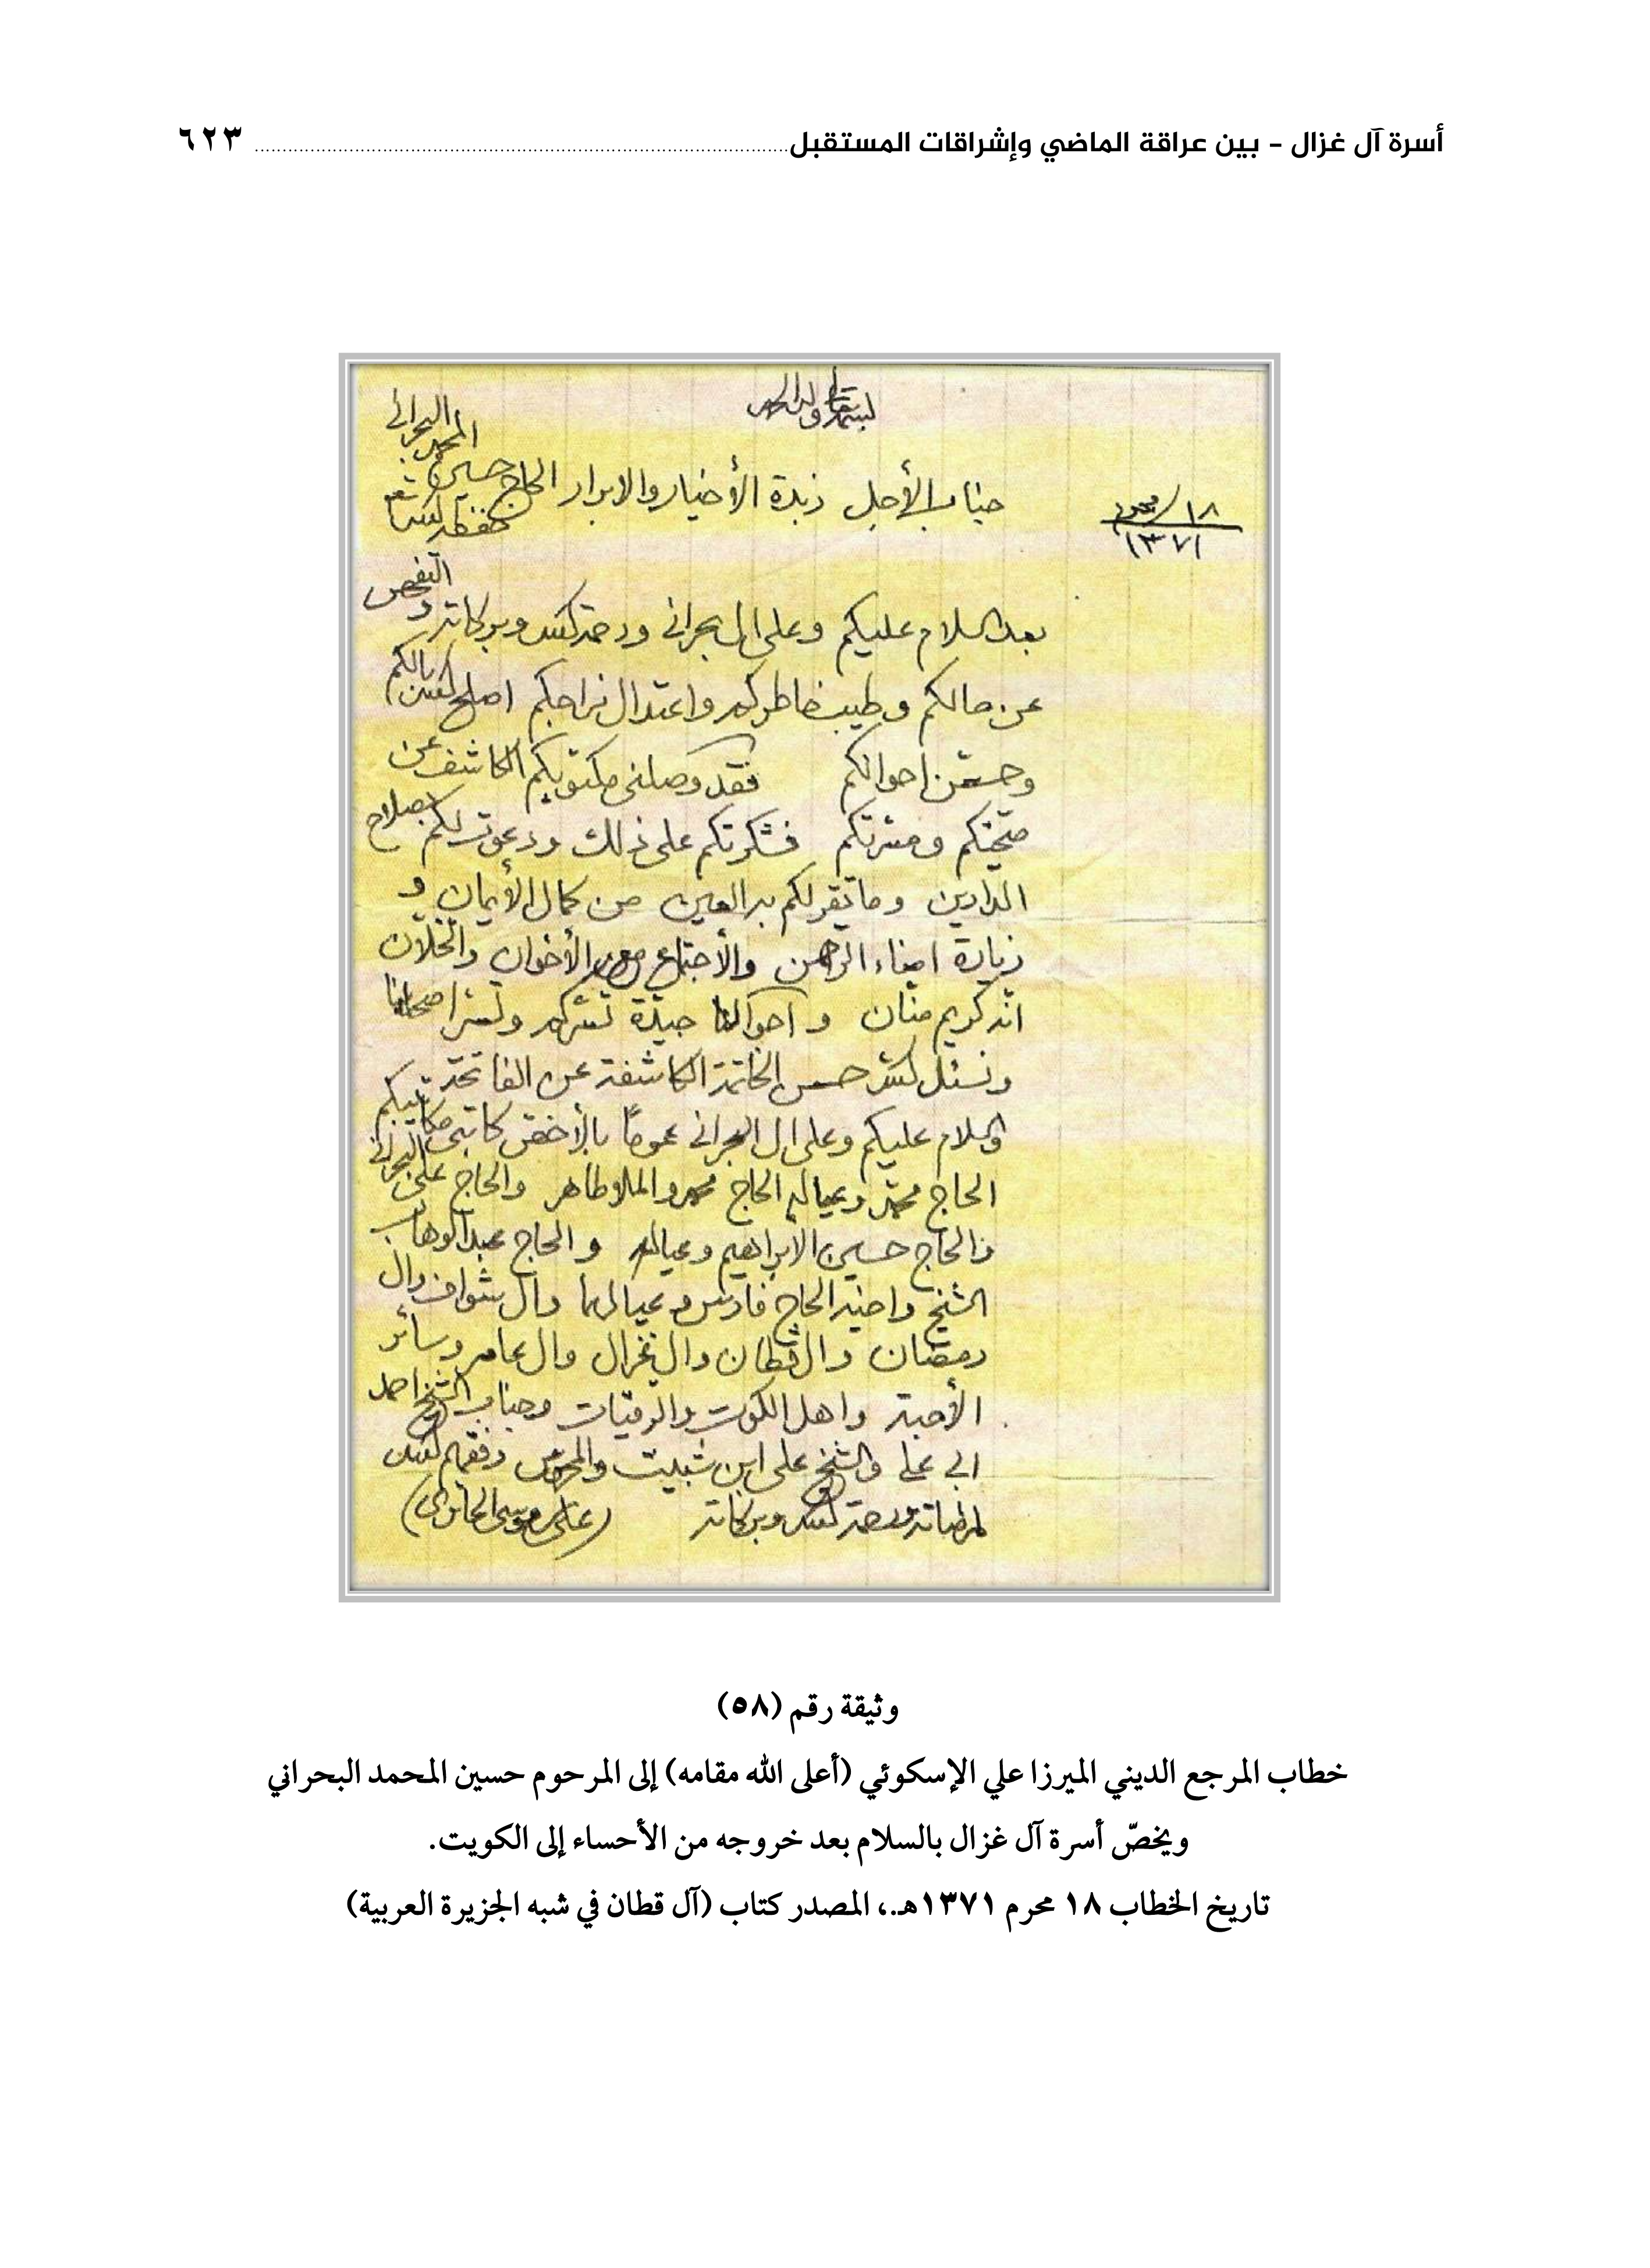 أسرة آل غزال – بين عراقة الماضي وإشراقات المستقبل ٦٢٣
بسمه تعالى وله الحمد
١٨/محرم
١٣٧١
جناب الأجل زبدة الأخيار والابرار الحاج حسين المحمد البحراني حفظه الله تعالى
بعد السلام عليكم وعلى ال بحراني ورحمة الله وبركاته و التفحص
عن حالكم وطيب خاطركم واعتدال مزاجكم اصلح الله بالكم
وحسّن احوالكم فقد وصلني مكتوبكم الكاشف عن
صحتكم ومسرتكم فشكرتكم على ذلك ودعوت لكم بصلاح
الدارين وما تقر لكم به العين من كمال الأيمان و
زيارة امناء الرحمن والأجتماع مع الأخوان والخلان
انه كريم منان و احوالنا جيدة تسركم وتسر اصحابنا
ونسئل الله حسن الخاتمة الكاشفة عن الفاتحة
والسلام عليكم وعلى ال البحراني عموماً بالأخص كاتب مكاتيبكم
الحاج محمد وعياله الحاج محمد والملا طاهر والحاج علي البحراني
والحاج حسين الابراهيم وعياله و الحاج عبدالوهاب
الشيخ واخيه الحاج فارس وعيالهما وال شواف وال
رمضان وال القطان وال غزال وال عامر وسائر
الأحبة واهل الكوت والرقيات وجناب الشيخ احمد
ابي علي والشيخ علي ابن شبيت وفقهم الله
لمرضاته ورحمة الله وبركاته (علي بن موسى الحائري)
وثيقة رقم (٥٨)
خطاب المرجع الديني الميرزا علي الإسكوئي (أعلى الله مقامه) إلى المرحوم حسين المحمد البحراني
ويخصّ أسرة آل غزال بالسلام بعد خروجه من الأحساء إلى الكويت.
تاريخ الخطاب ١٨ محرم ١٣٧١هـ.، المصدر كتاب (آل قطان في شبه الجزيرة العربية)